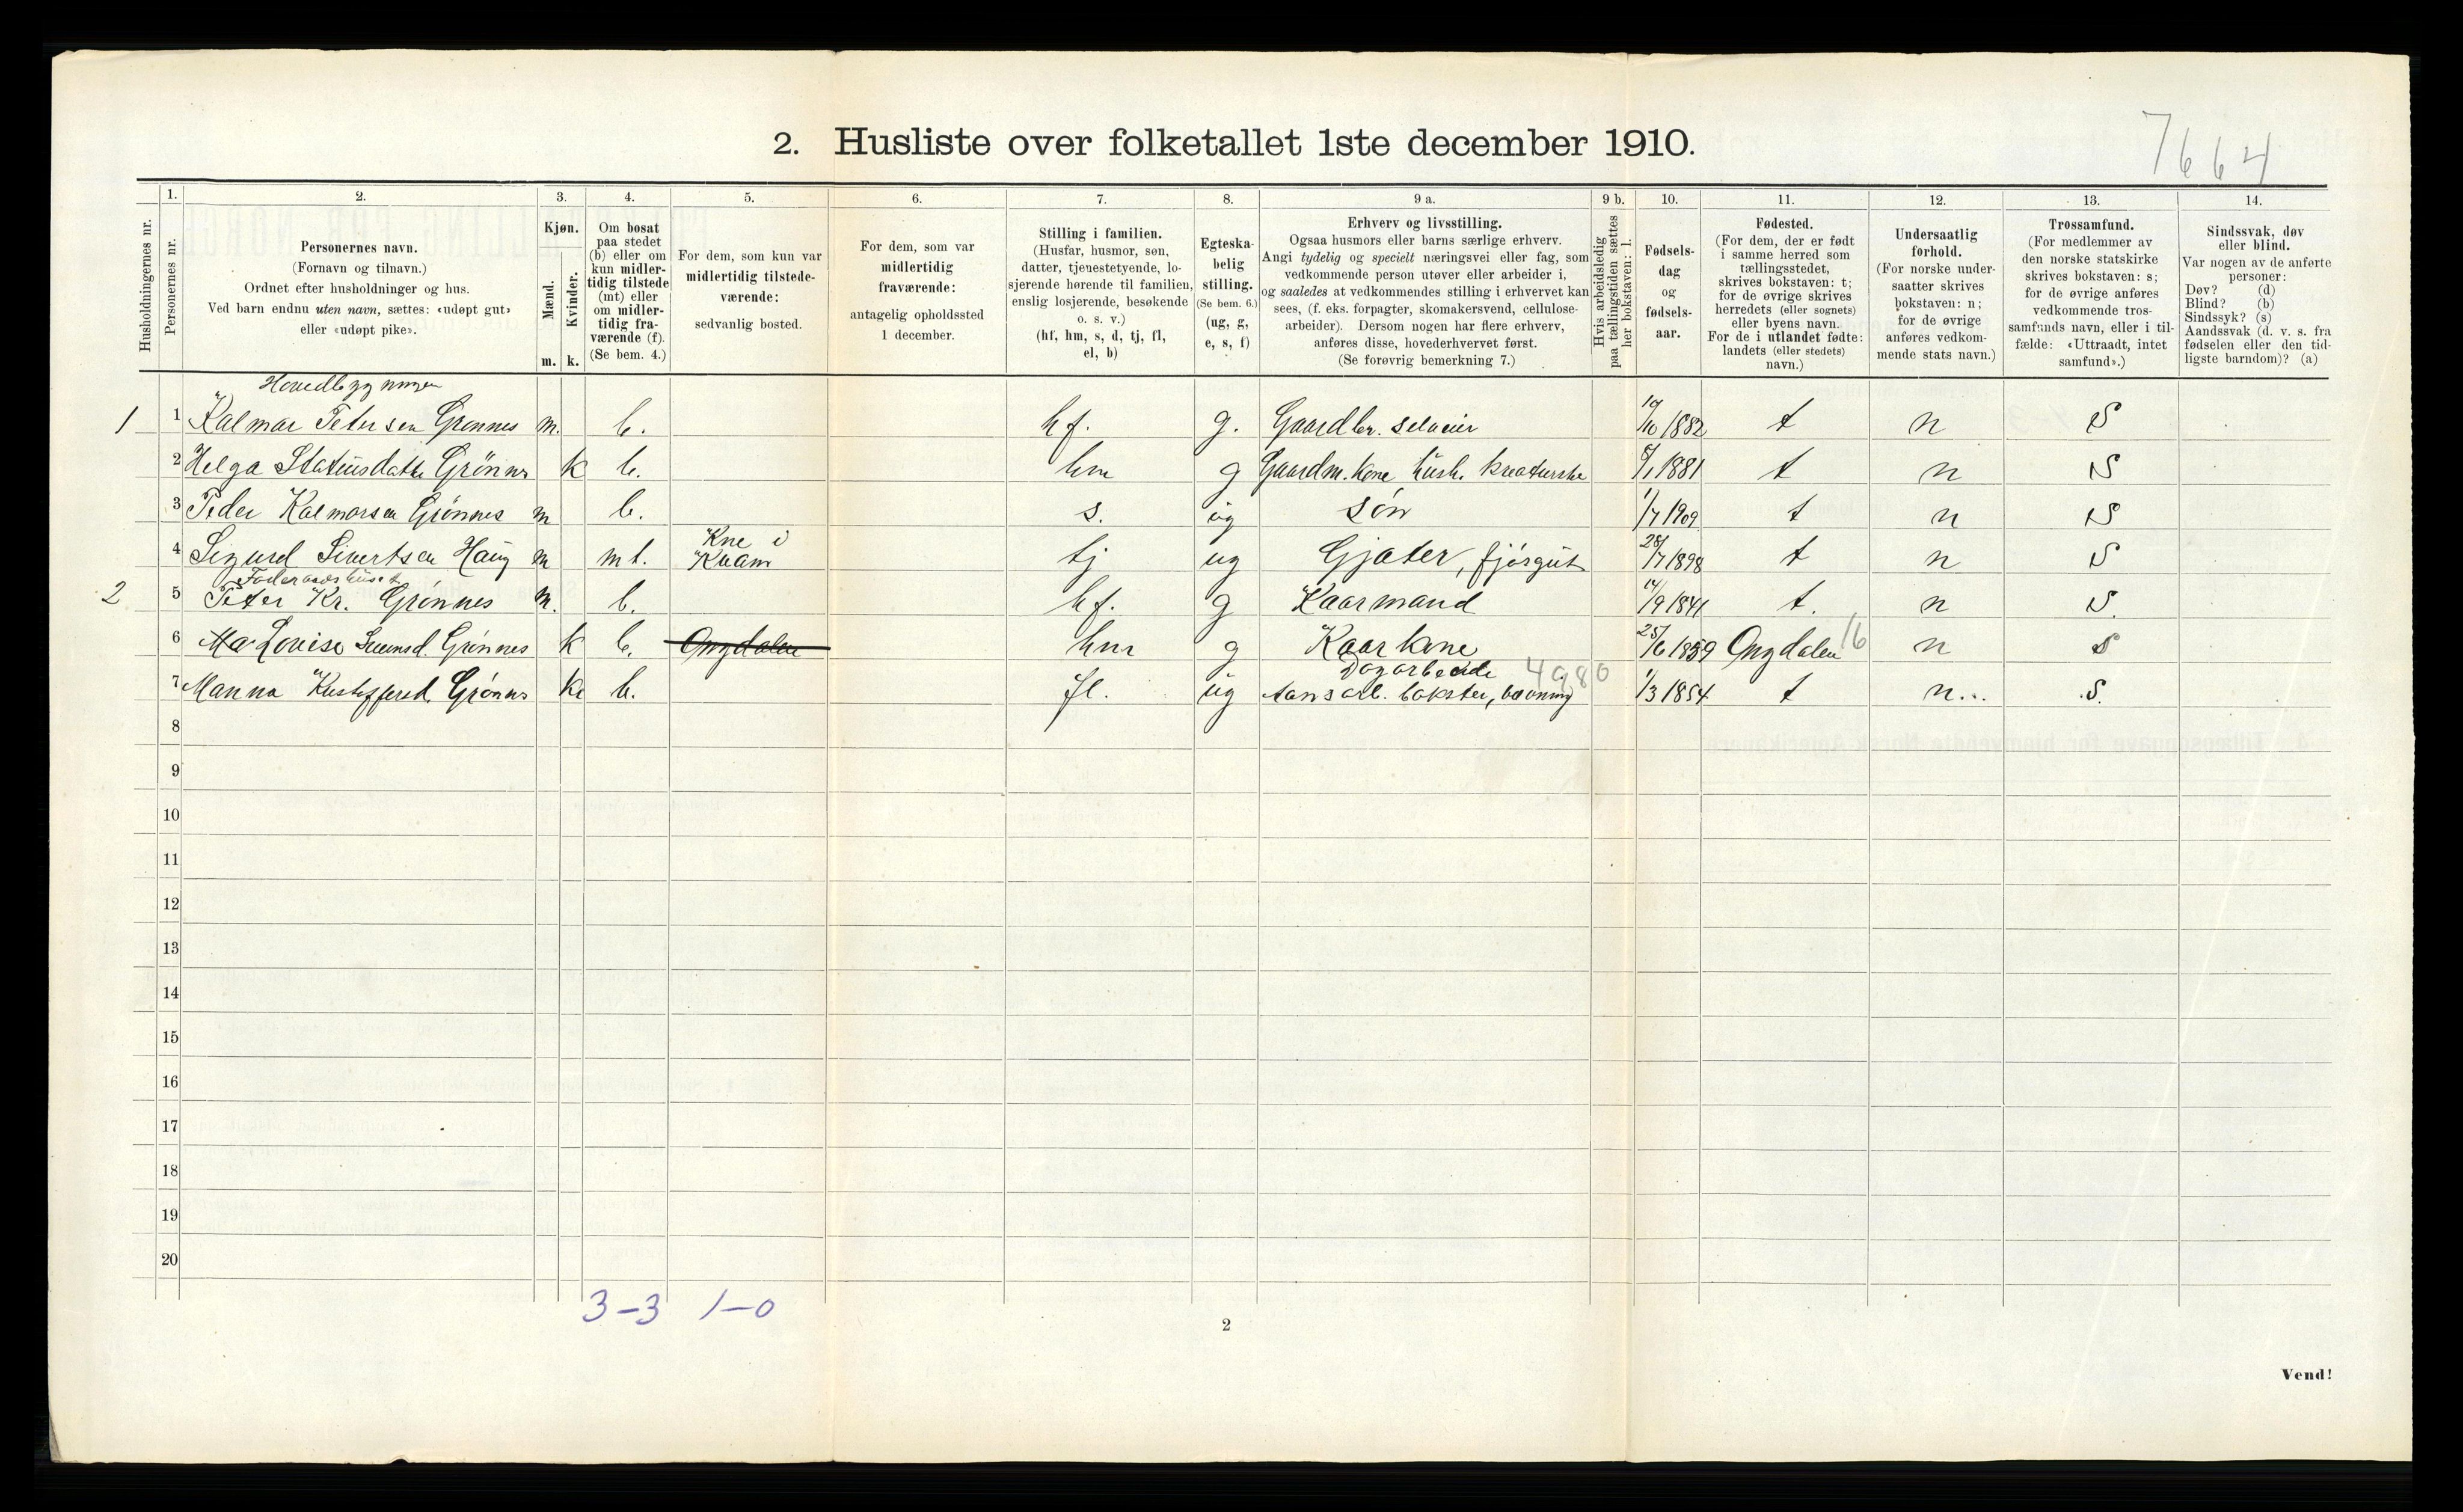 7664
2. Husliste over folketallet 1ste december 1910.
Husholdningernes nr.
1.
Personernes nr.
2.
Personernes navn.
(Fornavn og tilnavn.)
Ordnet efter husholdninger og hus.
Ved barn endnu uten navn, sættes: «udøpt gut»
eller «udøpt pike».
3.
Kjøn.
Mænd.
Kvinder.
m. k.
4.
Om bosat
paa stedet
(b) eller om
kun midler-
tidig tilstede
(mt) eller
om midler-
tidig fra-
værende (f).
(Se bem. 4.)
5.
For dem, som kun var
midlertidig tilstede-
værende:
sedvanlig bosted.
6.
For dem, som var
midlertidig
fraværende:
antagelig opholdssted
1 december.
7.
Stilling i familien.
(Husfar, husmor, søn,
datter, tjenestetyende, lo-
sjerende hørende til familien,
enslig losjerende, besøkende
o. s. v.)
(hf, hm, s, d, tj, fl,
el, b)
8.
Egteska-
belig
stilling.
(Se bem. 6.)
(ug, g,
e, s, f)
9 a.
Erhverv og livsstilling.
Ogsaa husmors eller barns særlige erhverv.
Angi tydelig og specielt næringsvei eller fag, som
vedkommende person utøver eller arbeider i,
og saaledes at vedkommendes stilling i erhvervet kan
sees, (f. eks. forpagter, skomakersvend, cellulose-
arbeider). Dersom nogen har flere erhverv,
anføres disse, hovederhvervet først.
(Se forøvrig bemerkning 7.)
9 b.
Hvis arbeidsledig
paa tællingstiden sættes
her bokstaven: l.
10.
Fødsels-
dag
og
fødsels-
aar.
11.
Fødested.
(For dem, der er født
i samme herred som
tællingsstedet,
skrives bokstaven: t;
for de øvrige skrives
herredets (eller sognets)
eller byens navn.
For de i utlandet fødte:
landets (eller stedets)
navn.)
12.
Undersaatlig
forhold.
(For norske under-
saatter skrives
bokstaven: n;
for de øvrige
anføres vedkom-
mende stats navn.)
13.
Trossamfund.
(For medlemmer av
den norske statskirke
skrives bokstaven: s;
for de øvrige anføres
vedkommende tros-
samfunds navn, eller i til-
fælde: «Uttraadt, intet
samfund».)
14.
Sindssvak, døv
eller blind.
Var nogen av de anførte
personer:
Døv? (d)
Blind? (b)
Sindssyk? (s)
Aandssvak (d. v. s. fra
fødselen eller den tid-
ligste barndom)? (a)
Hovedbygningen
1 1 Kalmar Petersen Grønnes m. b. hf. g. Gaardbr. selveier 19/10 1882 t n S
2 Helga Statiusdatter Grønnes k b. hm g Gaardm. Kone hush. kreaturstel 8/1 1881 t n S
3 Peder Kalmarsen Grønnes m b. s. ug søn 1/7 1909 t n S
4 Sigurd Sivertsen Haug m mt. Kne i Kvam tj ug Gjæter, fjøsgut 28/7 1898 t n S
Føderaadshuset
2 5 Peter Kr. Grønnes m. b. hf. g Kaarmand 14/9 1841 t. n S.
6 Louise Grønnes k b. Ongdalen hm g Kaarkone 25/6 1859 Ongdalen 16 n S
Dagarbeide 4980
7 Manna Kristoffersd. Grønnes k b. fl. ug bakster, 1/3 1854 t n... S.
8
9
10
11
12
13
14
15
16
17
18
19
20
3-3 1-0
2
Vend!